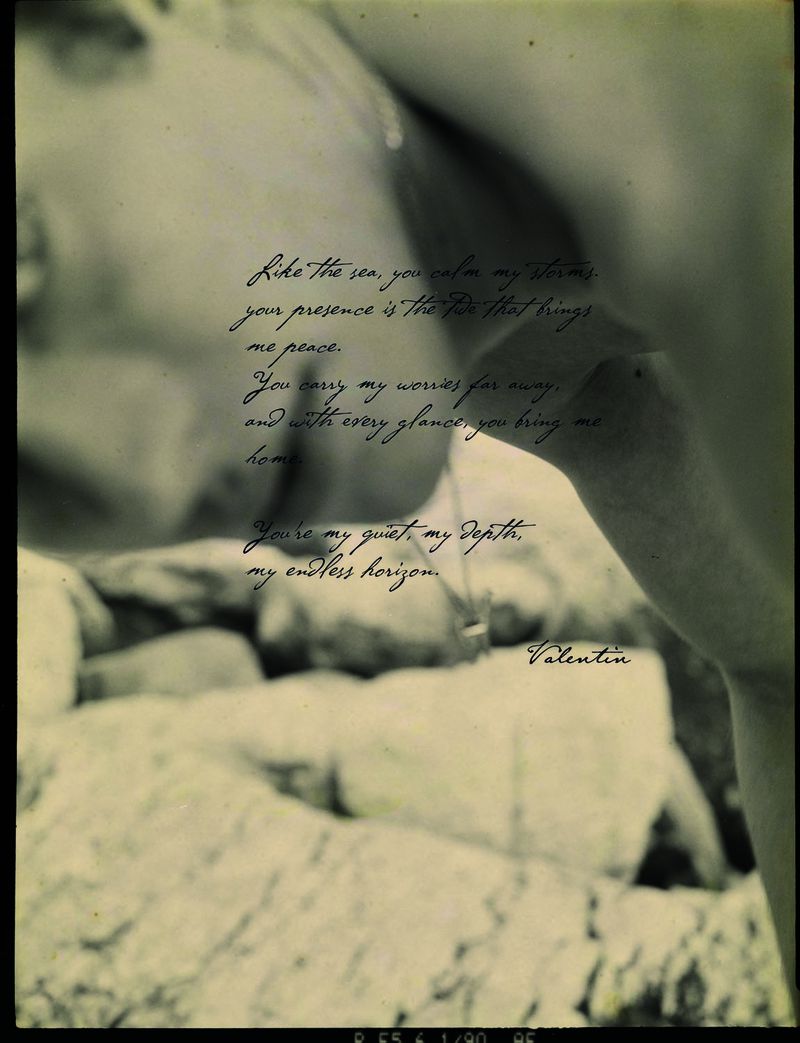 Like the sea, you calm my storms.
your presence is the tide that brings
me peace.
You carry my worries far away,
and with every glance, you bring me
home.
You're my quiet, my depth,
my endless horizon.
Valentin